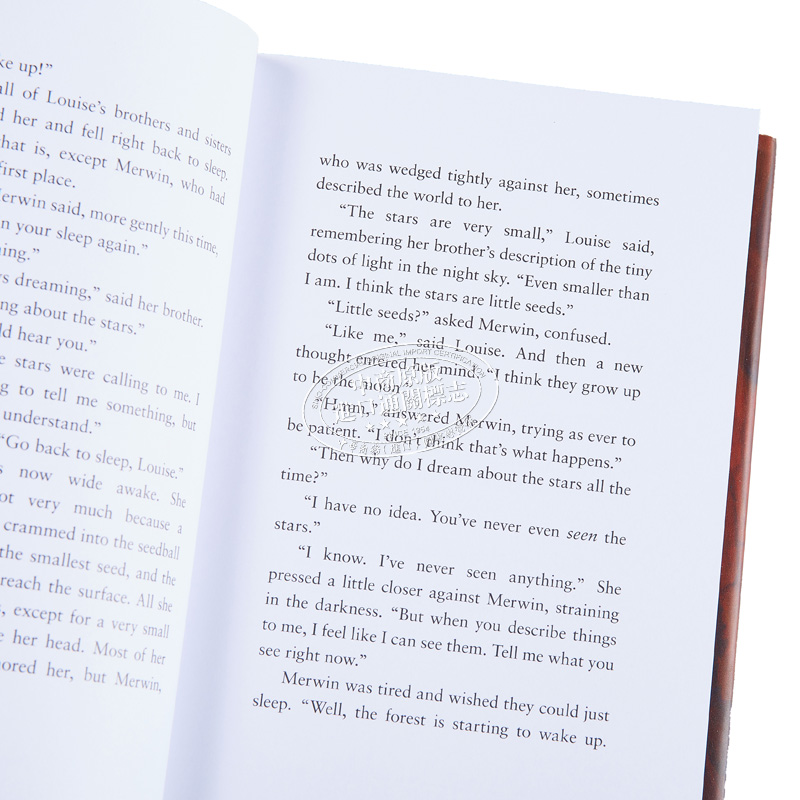 ke up!”
all of Louise’s brothers and sisters
d her and fell right back to sleep.
hat is, except Merwin, who had
first place.
Merwin said, more gently this time,
n your sleep again.”
hing.”
s dreaming,” said her brother.
ng about the stars.”
ld hear you.”
e stars were calling to me. I
ng to tell me something, but
understand.”
“Go back to sleep, Louise.”
s now wide awake. She
ot very much because a
crammed into the seedball
the smallest seed, and the
reach the surface. All she
s, except for a very small
e her head. Most of her
nored her, but Merwin,
who was wedged tightly against her, sometimes
described the world to her.
“The stars are very small,” Louise said,
remembering her brother’s description of the tiny
dots of light in the night sky. “Even smaller than
I am. I think the stars are little seeds.”
“Little seeds?” asked Merwin, confused.
“Like me,” said Louise. And then a new
thought entered her mind. “I think they grow up
to be the moon.”
“Hmm,” answered Merwin, trying as ever to
be patient. “I don’t think that’s what happens.”
“Then why do I dream about the stars all the
time?”
“I have no idea. You’ve never even seen the
stars.”
“I know. I’ve never seen anything.” She
pressed a little closer against Merwin, straining
in the darkness. “But when you describe things
to me, I feel like I can see them. Tell me what you
see right now.”
Merwin was tired and wished they could just
sleep. “Well, the forest is starting to wake up.